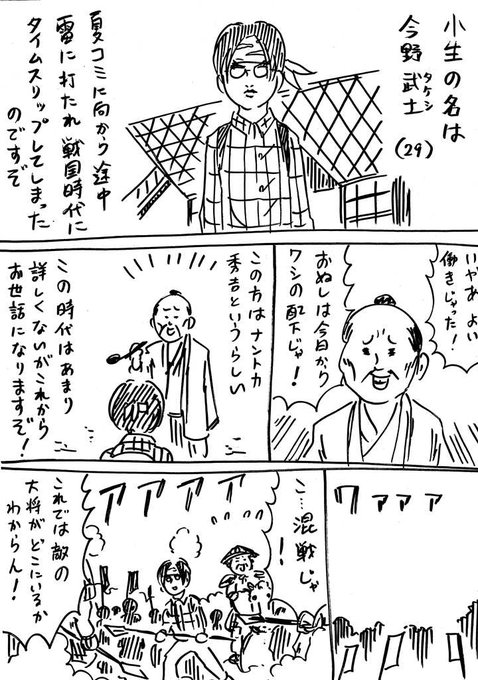 小生の名は
今野 武士
タケシ
(29)
夏コミに向かう途中
雷に打たれ戦国時代に
タイムスリップしてしまった
のですぞ
いやあ よい
働きじゃった!
おぬしは今日から
ワシの配下じゃ!
この方はナントカ
秀吉というらしい
この時代はあまり
詳しくないがこれから
お世話になりますぞ!
ワァァァ
アアアア
こ…混戦じゃ
!
これでは敵の
大将がどこにいるか
わからん!